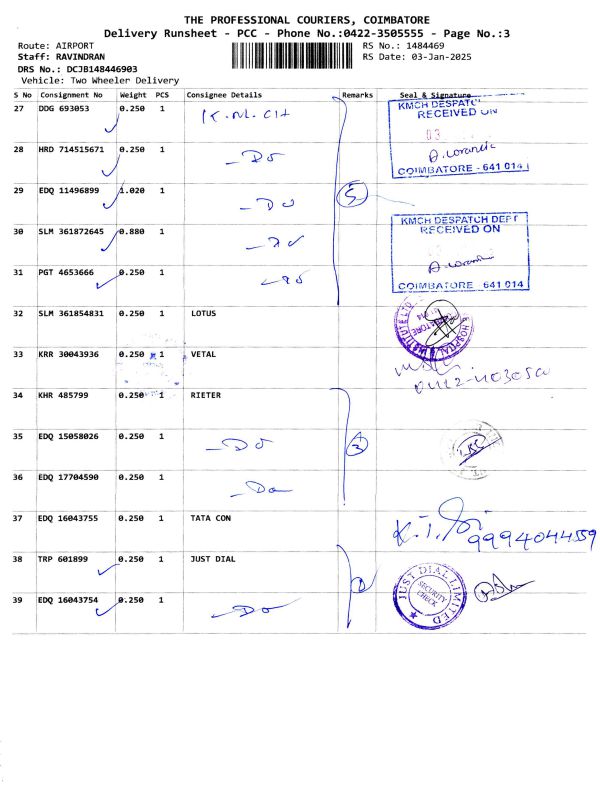 THE PROFESSIONAL COURIERS, COIMBATORE
Delivery Runsheet - PCC - Phone No.:0422-3505555 - Page No.:3
Route: AIRPORT RS No.: 1484469
Staff: RAVINDRAN RS Date: 03-Jan-2025
DRS No.: DCJB148446903
Vehicle: Two Wheeler Delivery
S No Consignment No Weight PCS Consignee Details Remarks Seal & Signature
27 DDG 693053 0.250 1 K.M.CH
KMCH DESPATCH
RECEIVED ON
03
COIMBATORE - 641 014
28 HRD 714515671 0.250 1 -Do
29 EDQ 11496899 1.020 1 -Do
5
30 SLM 361872645 0.880 1 -Do
KMCH DESPATCH DEPT
RECEIVED ON
COIMBATORE - 641 014
31 PGT 4653666 0.250 1 -Do
32 SLM 361854831 0.250 1 LOTUS
33 KRR 30043936 0.250 1 VETAL
34 KHR 485799 0.250 1 RIETER
35 EDQ 15058026 0.250 1 -Do
3
36 EDQ 17704590 0.250 1 -Do
37 EDQ 16043755 0.250 1 TATA CON
9994044559
38 TRP 601899 0.250 1 JUST DIAL
JUST DIAL LIMITED
SECURITY
CHECK
39 EDQ 16043754 0.250 1 -Do
2